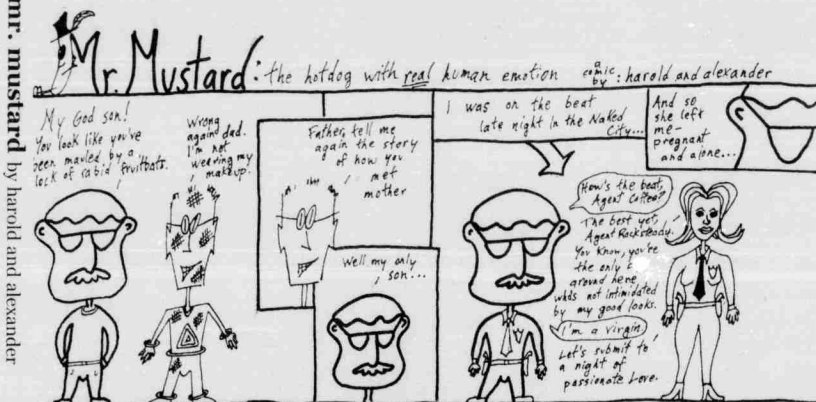 mr. mustard by harold and alexander
Mr. Mustard: the hotdog with real human emotion
a comic by: harold and alexander
My God son!
You look like you've
been mauled by a
flock of rabid fruitbats.
Wrong
again dad.
I'm not
wearing my
makeup.
Father, tell me
again the story
of how you
met
mother
Well my only
son...
I was on the beat
late night in the Naked
City...
How's the beat,
Agent Coffee?
The best yet,
Agent Rocksteady.
You know, you're
the only
around here
who's not intimidated
by my good looks.
I'm a virgin.
Let's submit to
a night of
passionate Love.
And so
she left
me-
pregnant
and alone...